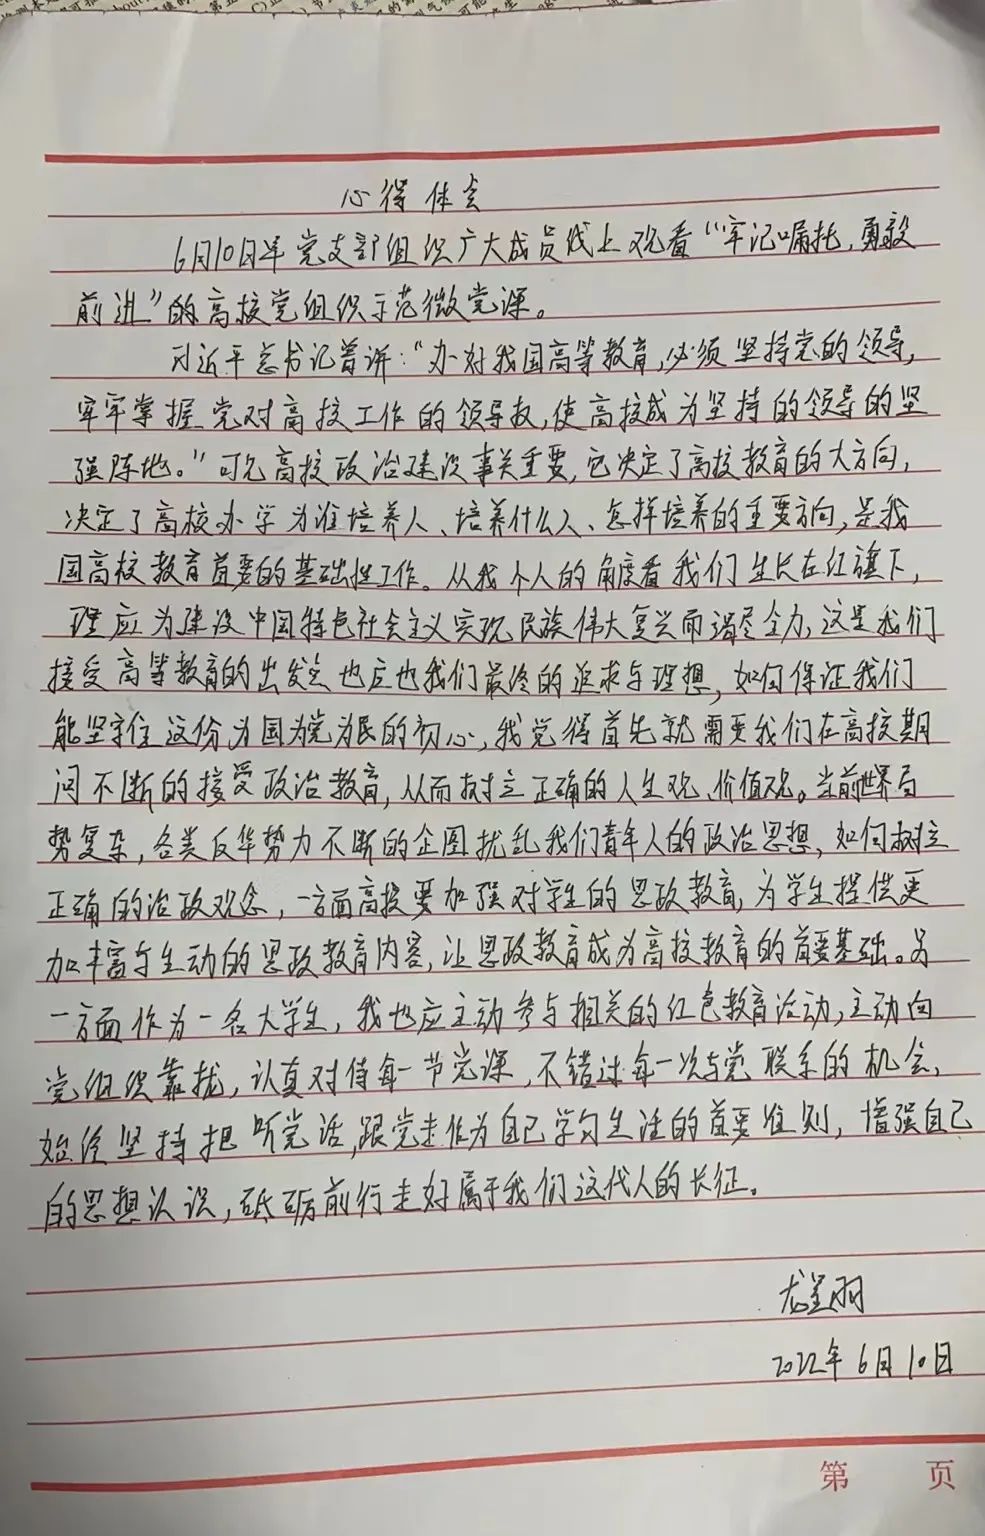 心得体会
6月10日半党支部组织广大成员线上观看“牢记嘱托,勇毅
前进”的高校党组织示范微党课。
习近平总书记曾讲:“办好我国高等教育,必须坚持党的领导,
牢牢掌握党对高校工作的领导权,使高校成为坚持的领导的坚
强阵地。”可见高校政治建设事关重要,它决定了高校教育的大方向,
决定了高校办学为谁培养人、培养什么人、怎样培养的重要方向,是我
国高校教育首要的基础性工作。从我个人的角度看我们生长在红旗下,
理应为建设中国特色社会主义实现民族伟大复兴而竭尽全力,这是我们
接受高等教育的出发点也应也我们最终的追求与理想,如何保证我们
能坚守住这份为国为党为民的初心,我觉得首先就需要我们在高校期
间不断的接受政治教育,从而树立正确的人生观、价值观。当前世界局
势复杂,各类反华势力不断的企图扰乱我们青年人的政治思想,如何树立
正确的治政观念,一方面高校要加强对学生的思政教育,为学生提供更
加丰富与生动的思政教育内容,让思政教育成为高校教育的首要基础。另
一方面作为一名大学生,我也应主动参与相关的红色教育活动,主动向
党组织靠拢,认真对待每一节党课,不错过每一次与党联系的机会,
始终坚持把听党话,跟党走作为自己学习生活的首要准则,增强自己
的思想认识,砥砺前行走好属于我们这代人的长征。
2022年6月10日
第 页